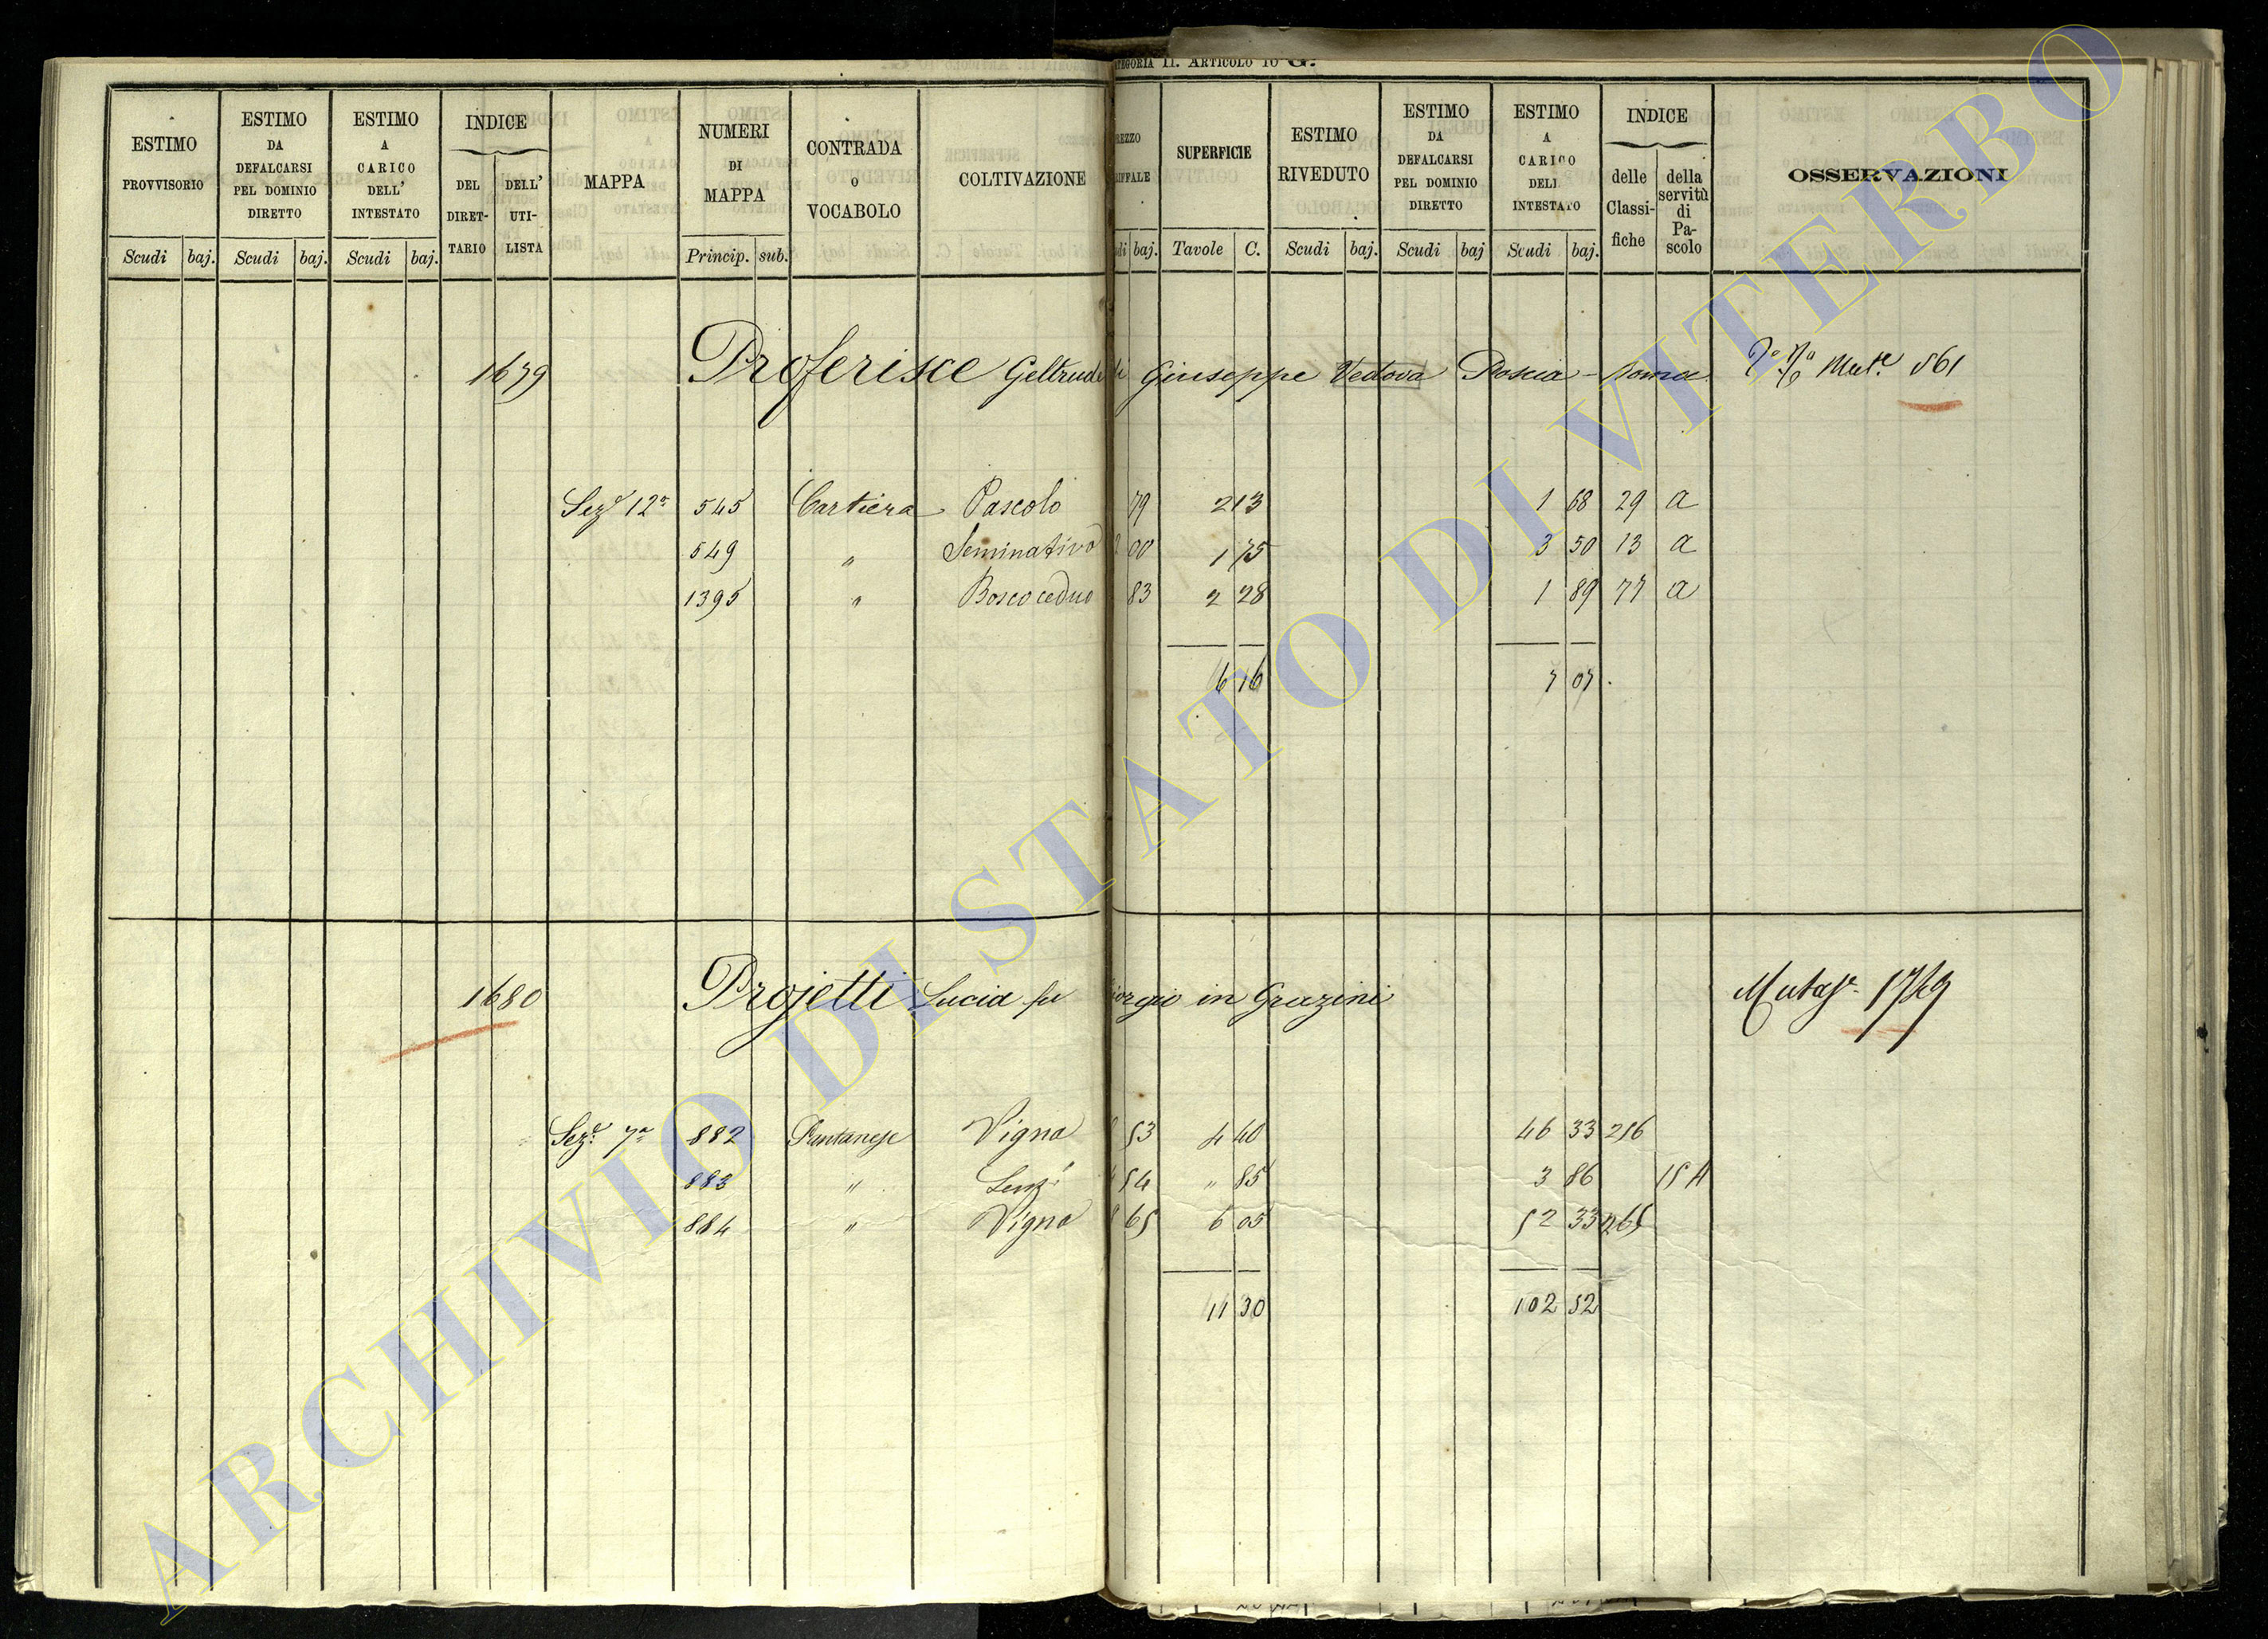 CATEGORIA II. ARTICOLO 10 G.
ESTIMO PROVVISORIO Scudi baj.
ESTIMO DA DEFALCARSI PEL DOMINIO DIRETTO Scudi baj.
ESTIMO A CARICO DELL' INTESTATO Scudi baj.
INDICE DEL DIRETTARIO DELL' UTILISTA
MAPPA
NUMERI DI MAPPA Princip. sub.
CONTRADA O VOCABOLO
COLTIVAZIONE
SUPERFICIE Tavole C.
ESTIMO RIVEDUTO Scudi baj.
ESTIMO DA DEFALCARSI PEL DOMINIO DIRETTO Scudi baj
ESTIMO A CARICO DELL INTESTATO Scudi baj.
INDICE delle Classifiche della servitù di Pascolo
OSSERVAZIONI
1679 Proferisce Geltrude di Giuseppe Vedova Mut.e 561
Sez.e 12a 545 Cartiera Pascolo 79 2 13 1 68 29 a
549 " Seminativo 2 00 1 75 3 50 13 a
1395 " Bosco ceduo 83 2 28 1 89 77 a
6 16 7 07
1680 Projetti Lucia fu Giorgio in Grazini 1749
Sez.e 7a 882 Pantanese Vigna 53 4 40 46 33 256
883 " 54 " 85 3 86 15 A
884 " Vigna 65 6 05 52 33 265
11 30 102 52
ARCHIVIO DI STATO DI VITERBO